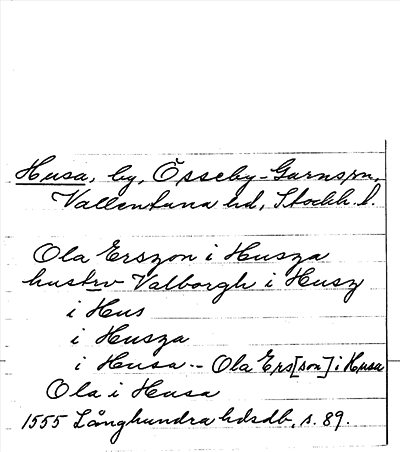 Husa, by, Össeby-Garns sn,
Vallentuna hd, Stockh. l.
Ola Erszon i Husza
hustrv Valborgh i Husz
i Hus
i Husza
i Husa -- Ola Ers[son] i Husa
Ola i Husa
1555 Långhundra hdsdb, s. 89.